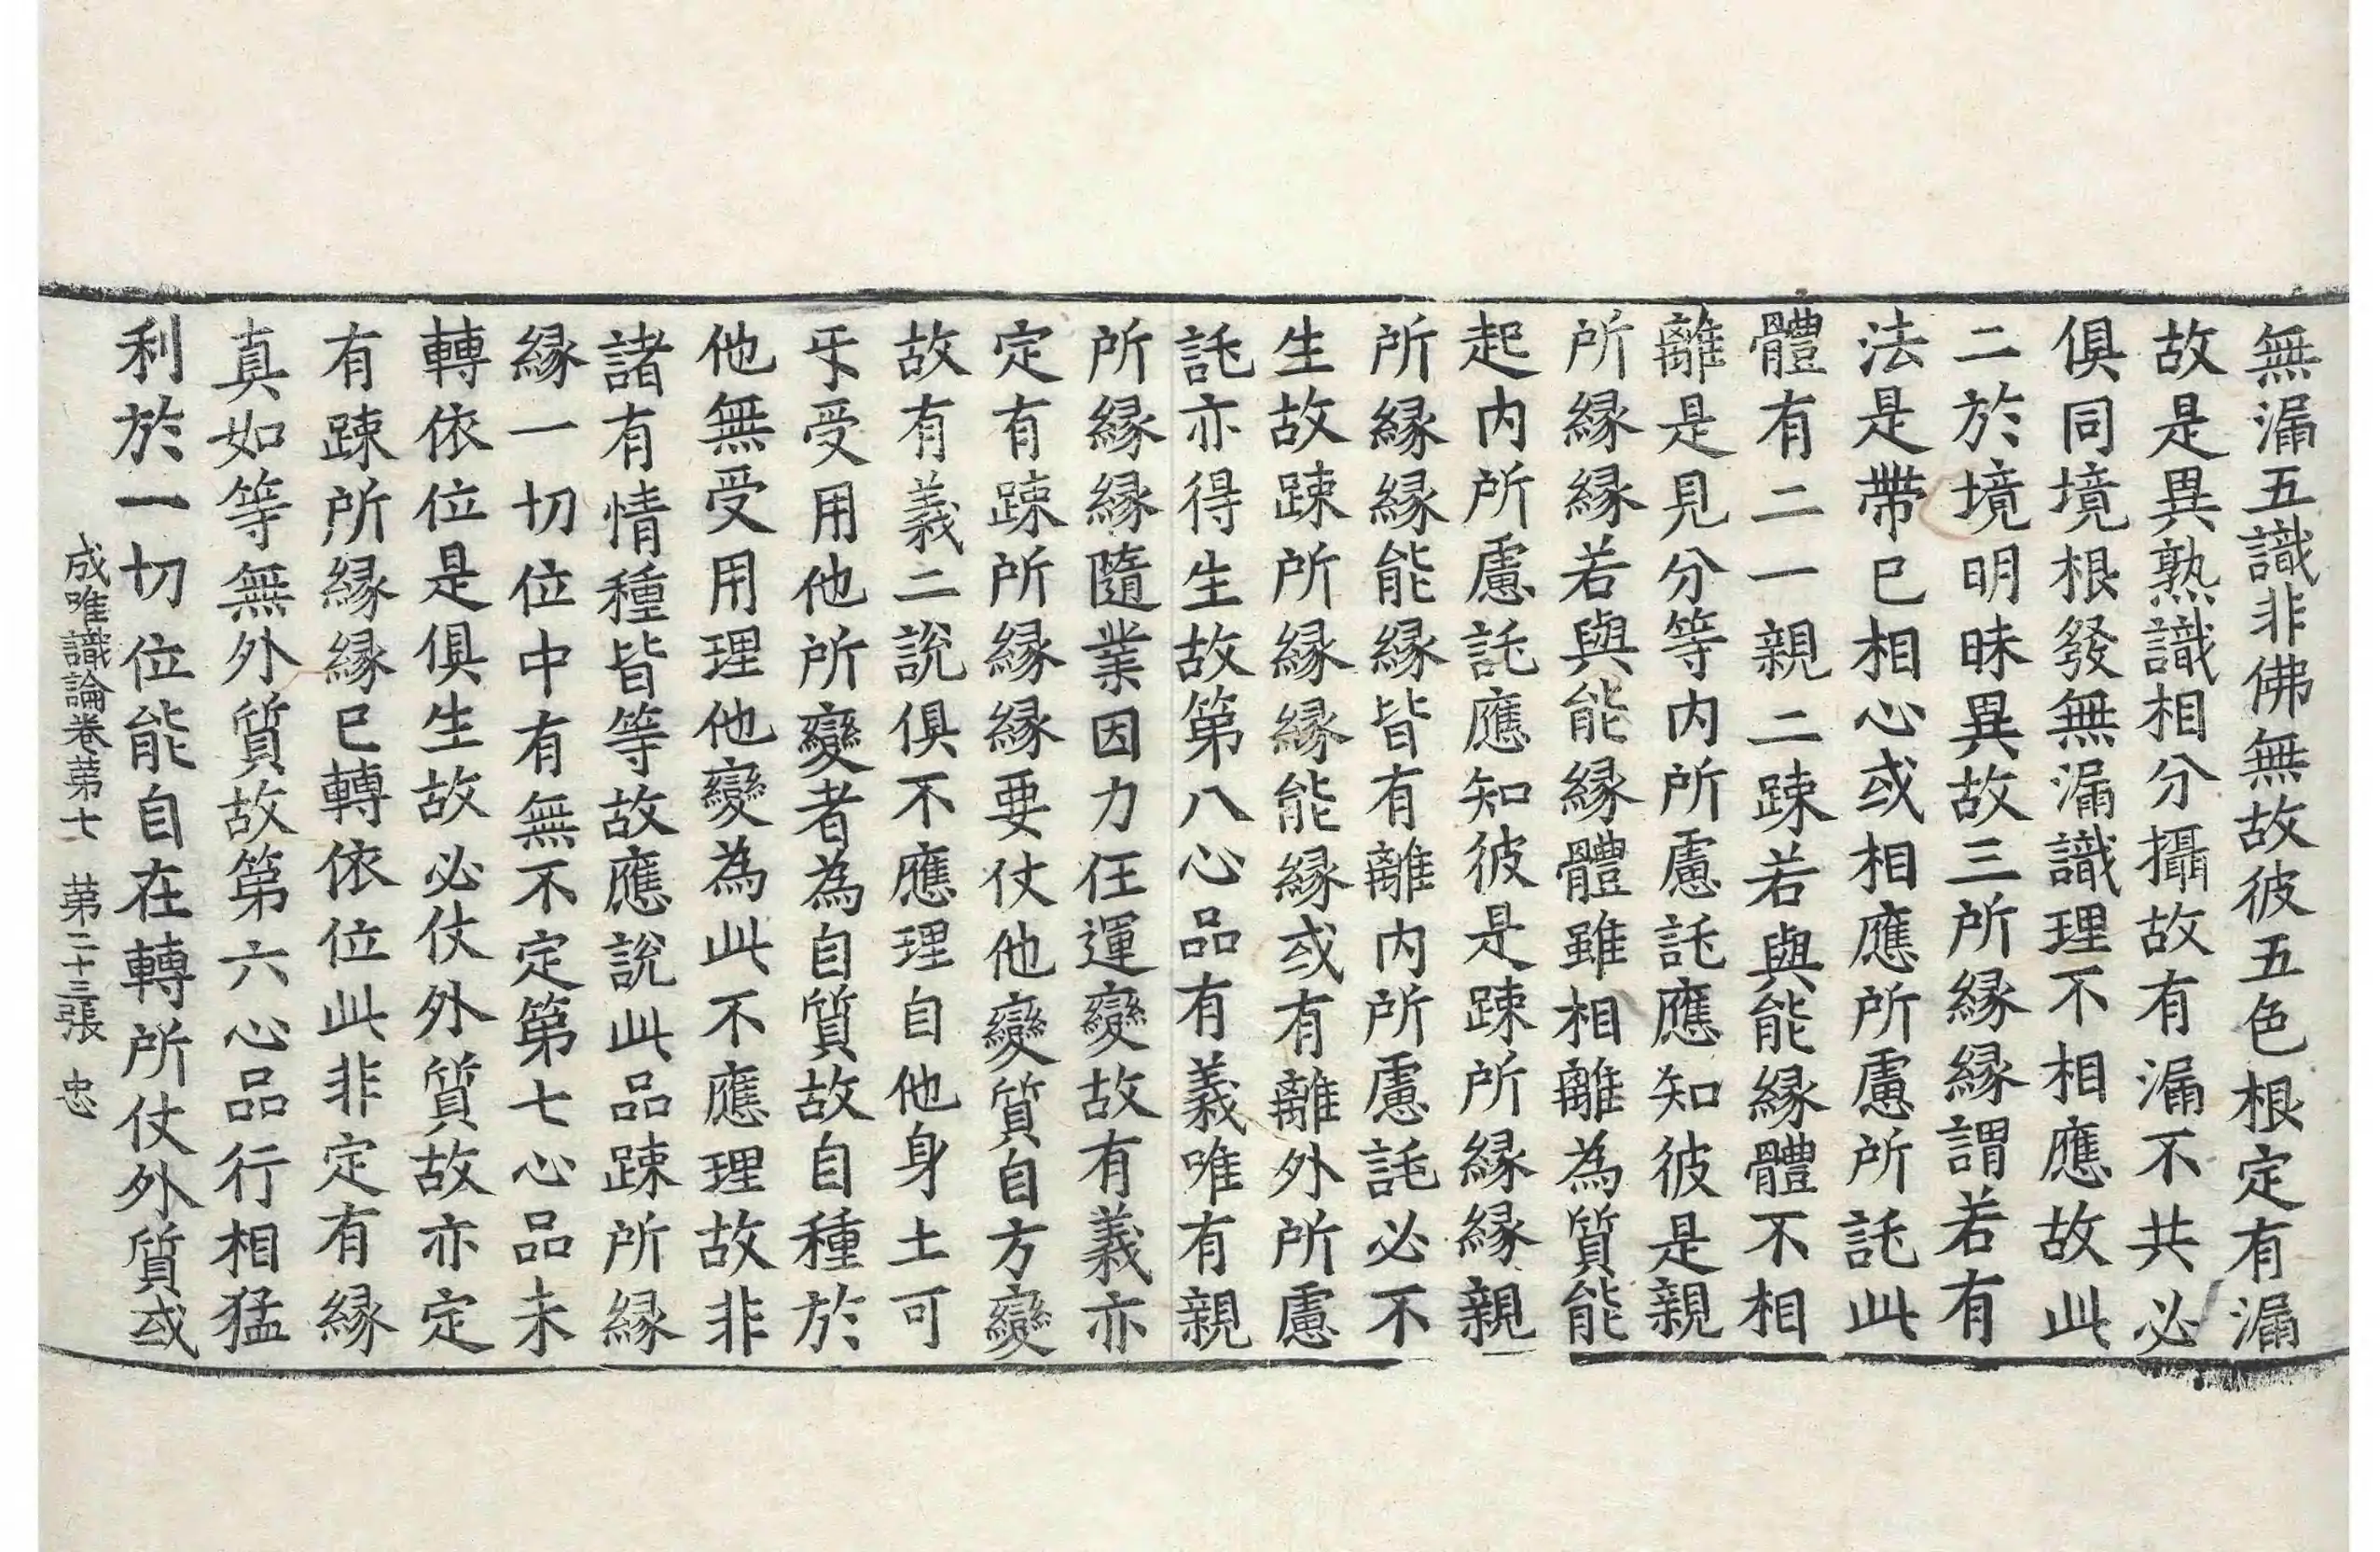 無漏五識非佛無故彼五色根定有漏
故是異熟識相分攝故有漏不共必
俱同境根發無漏識理不相應故此
二於境明昧異故三所縁縁謂若有
法是帶已相心或相應所慮所託此
體有二一親二踈若與能縁體不相
離是見分等内所慮託應知彼是親
所縁縁若與能縁體雖相離為質能
起内所慮託應知彼是踈所縁縁親
所縁縁能縁皆有離内所慮託必不
生故踈所縁縁能縁或有離外所慮
託亦得生故第八心品有義唯有親
所縁縁隨業因力任運變故有義亦
定有踈所縁縁要仗他變質自方變
故有義二說俱不應理自他身土可
㸦受用他所變者為自質故自種於
他無受用理他變為此不應理故非
諸有情種皆等故應說此品踈所縁
縁一切位中有無不定第七心品未
轉依位是俱生故必仗外質故亦定
有踈所縁縁已轉依位此非定有縁
真如等無外質故第六心品行相猛
利於一切位能自在轉所仗外質或
成唯識論卷第七　第二十三張　忠